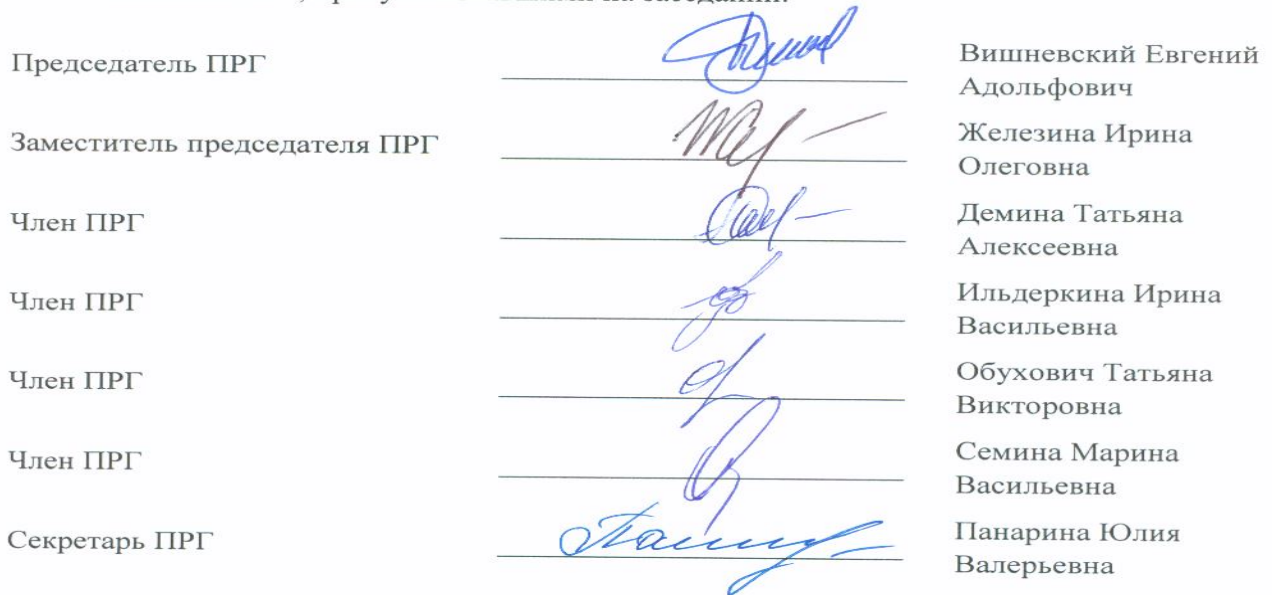 на заседании.
Председатель ПРГ
Вишневский Евгений
Адольфович
Заместитель председателя ПРГ
Железина Ирина
Олеговна
Член ПРГ
Демина Татьяна
Алексеевна
Член ПРГ
Ильдеркина Ирина
Васильевна
Член ПРГ
Обухович Татьяна
Викторовна
Член ПРГ
Семина Марина
Васильевна
Секретарь ПРГ
Панарина Юлия
Валерьевна